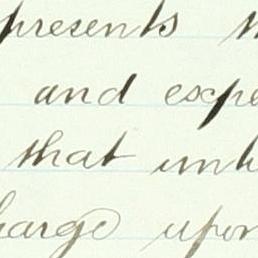 presents
and expe
that unti
harge upon